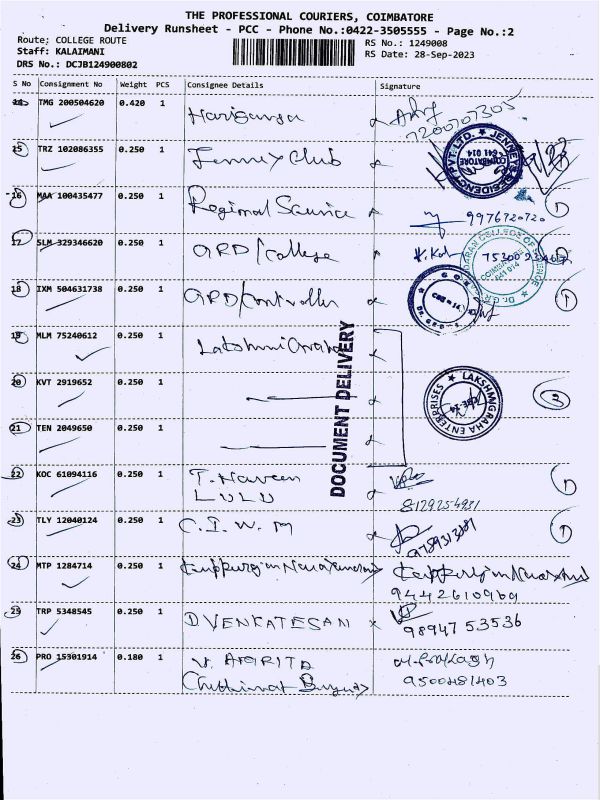 THE PROFESSIONAL COURIERS, COIMBATORE
Delivery Runsheet - PCC - Phone No.:0422-3505555 - Page No.:2
Route: COLLEGE ROUTE
RS No.: 1249008
Staff: KALAIMANI
RS Date: 28-Sep-2023
DRS No.: DCJB124900802
S No Consignment No Weight PCS Consignee Details Signature
14 TMG 200504620 0.420 1
7200707305
15 TRZ 102086355 0.250 1 Jenney Club
JENNEYS RESIDENCY PVT. LTD. COIMBATORE 641 014
16 MAA 100435477 0.250 1 Regional Science
9976720720
17 SLM 329346620 0.250 1 GRD/College
COLLEGE OF SCIENCE COIMBATORE 641 014 Dr. G.R.
18 IXM 504631738 0.250 1 GRD/Controller
19 MLM 75240612 0.250 1
20 KVT 2919652 0.250 1
LAKSHANGRAHA ENTERPRISES CBE-14
21 TEN 2049650 0.250 1
DOCUMENT DELIVERY
22 KOC 61094116 0.250 1 T. Naveen
LULU
8129254931
23 TLY 12040124 0.250 1 C.I.W.M
24 MTP 1284714 0.250 1
9442610960
25 TRP 5348545 0.250 1 D VENKATESAN
98947 53536
26 PRO 15301914 0.180 1 V. AMRITA M. PRAKASH
9500481403